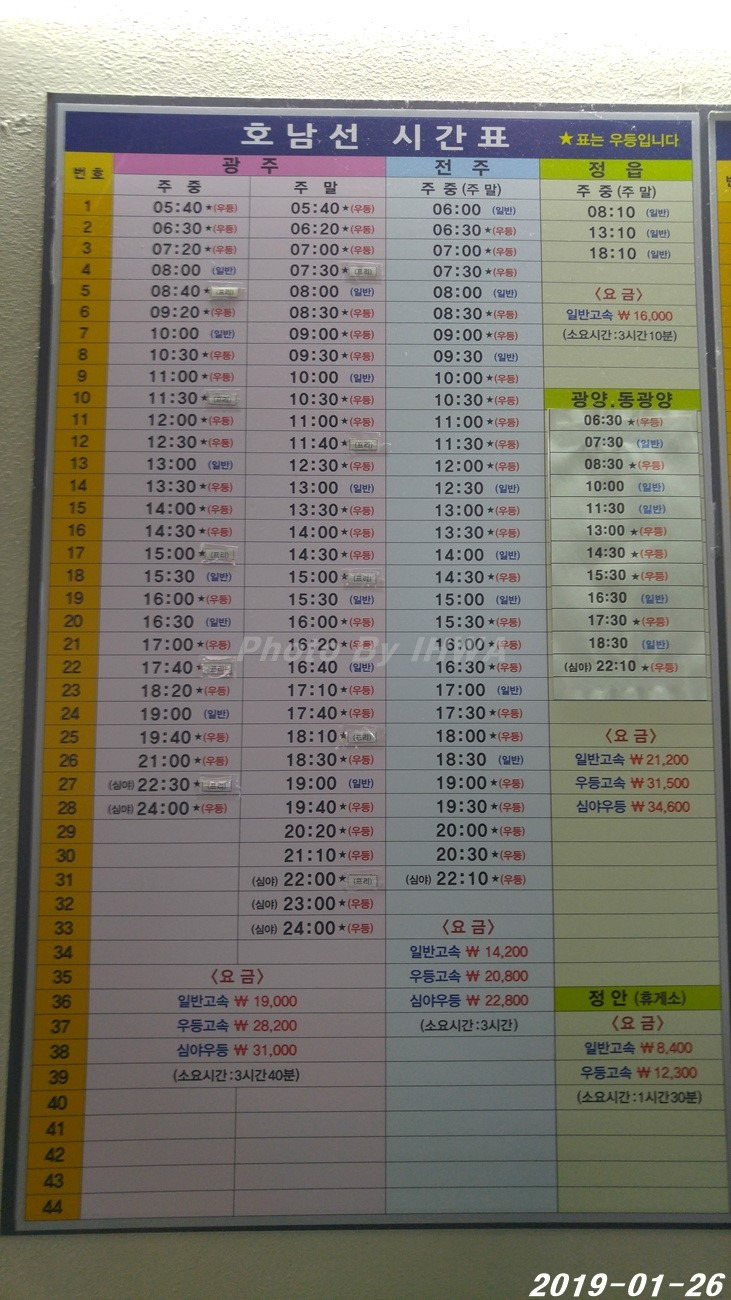 호남선 시간표 ★표는 우등입니다
번호 광주 전주 정읍
주중 주말 주중(주말) 주중(주말)
1 05:40★(우등) 05:40★(우등) 06:00 (일반) 08:10 (일반)
2 06:30★(우등) 06:20★(우등) 06:30★(우등) 13:10 (일반)
3 07:20★(우등) 07:00★(우등) 07:00★(우등) 18:10 (일반)
4 08:00 (일반) 07:30★(프리) 07:30★(우등)
5 08:40★(프리) 08:00 (일반) 08:00 (일반) 〈요금〉
6 09:20★(우등) 08:30★(우등) 08:30★(우등) 일반고속 ₩ 16,000
7 10:00 (일반) 09:00★(우등) 09:00★(우등) (소요시간:3시간10분)
8 10:30★(우등) 09:30★(우등) 09:30 (일반)
9 11:00★(우등) 10:00 (일반) 10:00★(우등)
10 11:30★(프리) 10:30★(우등) 10:30★(우등) 광양.동광양
11 12:00★(우등) 11:00★(우등) 11:00★(우등) 06:30 ★(우등)
12 12:30★(우등) 11:40★(프리) 11:30★(우등) 07:30 (일반)
13 13:00 (일반) 12:30★(우등) 12:00★(우등) 08:30 ★(우등)
14 13:30★(우등) 13:00 (일반) 12:30 (일반) 10:00 (일반)
15 14:00★(우등) 13:30★(우등) 13:00★(우등) 11:30 (일반)
16 14:30★(우등) 14:00★(우등) 13:30★(우등) 13:00 ★(우등)
17 15:00★(프리) 14:30★(우등) 14:00 (일반) 14:30 ★(우등)
18 15:30 (일반) 15:00★(프리) 14:30★(우등) 15:30 ★(우등)
19 16:00★(우등) 15:30 (일반) 15:00 (일반) 16:30 (일반)
20 16:30 (일반) 16:00★(우등) 15:30★(우등) 17:30 ★(우등)
21 17:00★(우등) 16:20★(우등) 16:00★(우등) 18:30 (일반)
22 17:40★ 16:40 (일반) 16:30★(우등) (심야) 22:10 ★(우등)
23 18:20★(우등) 17:10★(우등) 17:00 (일반)
24 19:00 (일반) 17:40★(우등) 17:30★(우등)
25 19:40★(우등) 18:10★ 18:00★(우등) 〈요금〉
26 21:00★(우등) 18:30★(우등) 18:30 (일반) 일반고속 ₩ 21,200
27 (심야) 22:30★(프리) 19:00 (일반) 19:00★(우등) 우등고속 ₩ 31,500
28 (심야) 24:00★(우등) 19:40★(우등) 19:30★(우등) 심야우등 ₩ 34,600
29 20:20★(우등) 20:00★(우등)
30 21:10★(우등) 20:30★(우등)
31 (심야) 22:00★(프리) (심야) 22:10★(우등)
32 (심야) 23:00★(우등)
33 (심야) 24:00★(우등) 〈요금〉
34 일반고속 ₩ 14,200
35 〈요금〉 우등고속 ₩ 20,800
36 일반고속 ₩ 19,000 심야우등 ₩ 22,800 정안 (휴게소)
37 우등고속 ₩ 28,200 (소요시간:3시간) 〈요금〉
38 심야우등 ₩ 31,000 일반고속 ₩8,400
39 (소요시간:3시간40분) 우등고속 ₩12,300
40 (소요시간:1시간30분)
41
42
43
44
Photo By IHWA
2019-01-26